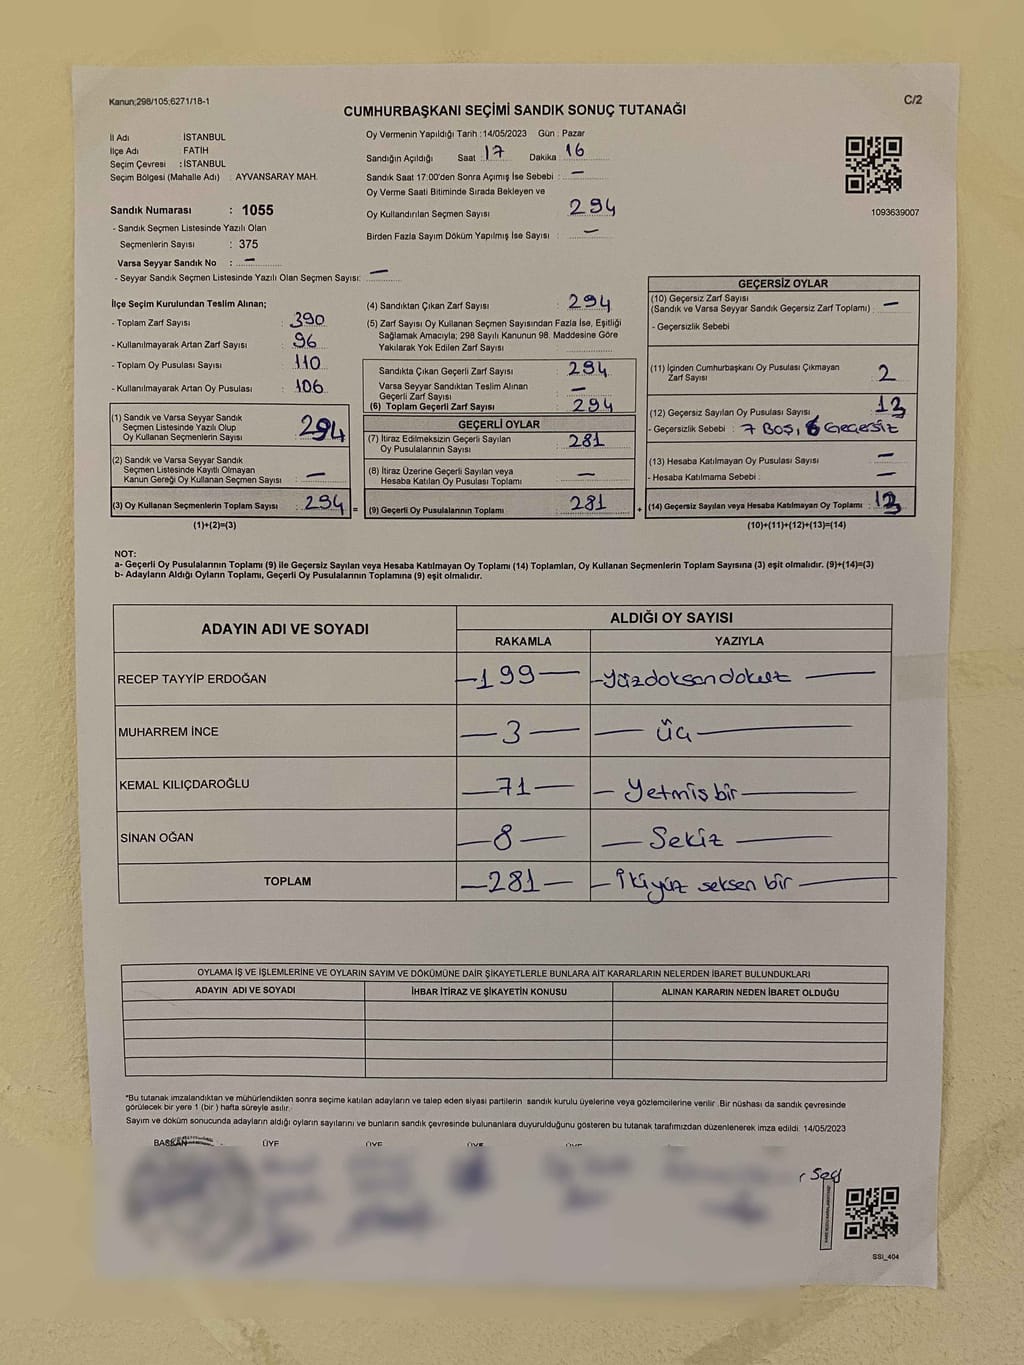 Kanun;298/105;6271/18-1
C/2
CUMHURBAŞKANI SEÇİMİ SANDIK SONUÇ TUTANAĞI
İl Adı İSTANBUL
İlçe Adı FATİH
Seçim Çevresi : İSTANBUL
Seçim Bölgesi (Mahalle Adı) : AYVANSARAY MAH.
Sandık Numarası : 1055
- Sandık Seçmen Listesinde Yazılı Olan
Seçmenlerin Sayısı : 375
Varsa Seyyar Sandık No : —
- Seyyar Sandık Seçmen Listesinde Yazılı Olan Seçmen Sayısı: —
Oy Vermenin Yapıldığı Tarih : 14/05/2023 Gün : Pazar
Sandığın Açıldığı Saat : 17 Dakika : 16
Sandık Saat 17:00'den Sonra Açımış İse Sebebi : —
Oy Verme Saati Bitiminde Sırada Bekleyen ve
Oy Kullandırılan Seçmen Sayısı : 294
Birden Fazla Sayım Döküm Yapılmış İse Sayısı : —
1093639007
İlçe Seçim Kurulundan Teslim Alınan;
- Toplam Zarf Sayısı : 390
- Kullanılmayarak Artan Zarf Sayısı : 96
- Toplam Oy Pusulası Sayısı : 110
- Kullanılmayarak Artan Oy Pusulası : 106
(1) Sandık ve Varsa Seyyar Sandık
Seçmen Listesinde Yazılı Olup
Oy Kullanan Seçmenlerin Sayısı : 294
(2) Sandık ve Varsa Seyyar Sandık
Seçmen Listesinde Kayıtlı Olmayan
Kanun Gereği Oy Kullanan Seçmen Sayısı : —
(3) Oy Kullanan Seçmenlerin Toplam Sayısı : 294 =
(1)+(2)=(3)
(4) Sandıktan Çıkan Zarf Sayısı : 294
(5) Zarf Sayısı Oy Kullanan Seçmen Sayısından Fazla İse, Eşitliği
Sağlamak Amacıyla; 298 Sayılı Kanunun 98. Maddesine Göre
Yakılarak Yok Edilen Zarf Sayısı :
Sandıkta Çıkan Geçerli Zarf Sayısı : 294
Varsa Seyyar Sandıktan Teslim Alınan
Geçerli Zarf Sayısı : —
(6) Toplam Geçerli Zarf Sayısı : 294
GEÇERLİ OYLAR
(7) İtiraz Edilmeksizin Geçerli Sayılan
Oy Pusulalarının Sayısı : 281
(8) İtiraz Üzerine Geçerli Sayılan veya
Hesaba Katılan Oy Pusulası Toplamı : —
(9) Geçerli Oy Pusulalarının Toplamı : 281 +
GEÇERSİZ OYLAR
(10) Geçersiz Zarf Sayısı
(Sandık ve Varsa Seyyar Sandık Geçersiz Zarf Toplamı) : —
- Geçersizlik Sebebi
(11) İçinden Cumhurbaşkanı Oy Pusulası Çıkmayan
Zarf Sayısı 2
(12) Geçersiz Sayılan Oy Pusulası Sayısı : 13
- Geçersizlik Sebebi : 7 BOŞ, 6 Geçersiz
(13) Hesaba Katılmayan Oy Pusulası Sayısı : —
- Hesaba Katılmama Sebebi : —
(14) Geçersiz Sayılan veya Hesaba Katılmayan Oy Toplamı : 13
(10)+(11)+(12)+(13)=(14)
NOT:
a- Geçerli Oy Pusulalarının Toplamı (9) ile Geçersiz Sayılan veya Hesaba Katılmayan Oy Toplamı (14) Toplamları, Oy Kullanan Seçmenlerin Toplam Sayısına (3) eşit olmalıdır. (9)+(14)=(3)
b- Adayların Aldığı Oyların Toplamı, Geçerli Oy Pusulalarının Toplamına (9) eşit olmalıdır.
ADAYIN ADI VE SOYADI ALDIĞI OY SAYISI
RAKAMLA YAZIYLA
RECEP TAYYİP ERDOĞAN —199— —Yüzdoksandokuz—
MUHARREM İNCE —3— —Üç—
KEMAL KILIÇDAROĞLU —71— —Yetmiş bir—
SİNAN OĞAN —8— —Sekiz—
TOPLAM —281— —İkiyüz seksen bir—
OYLAMA İŞ VE İŞLEMLERİNE VE OYLARIN SAYIM VE DÖKÜMÜNE DAİR ŞİKAYETLERLE BUNLARA AİT KARARLARIN NELERDEN İBARET BULUNDUKLARI
ADAYIN ADI VE SOYADI İHBAR İTİRAZ VE ŞİKAYETİN KONUSU ALINAN KARARIN NEDEN İBARET OLDUĞU
*Bu tutanak imzalandıktan ve mühürlendikten sonra seçime katılan adayların ve talep eden siyasi partilerin sandık kurulu üyelerine veya gözlemcilerine verilir .Bir nüshası da sandık çevresinde
görülecek bir yere 1 (bir ) hafta süreyle asılır.
Sayım ve döküm sonucunda adayların aldığı oyların sayılarını ve bunların sandık çevresinde bulunanlara duyurulduğunu gösteren bu tutanak tarafımızdan düzenlenerek imza edildi. 14/05/2023
BAŞKAN ÜYE ÜYE ÜYE ÜYE
SSI_404